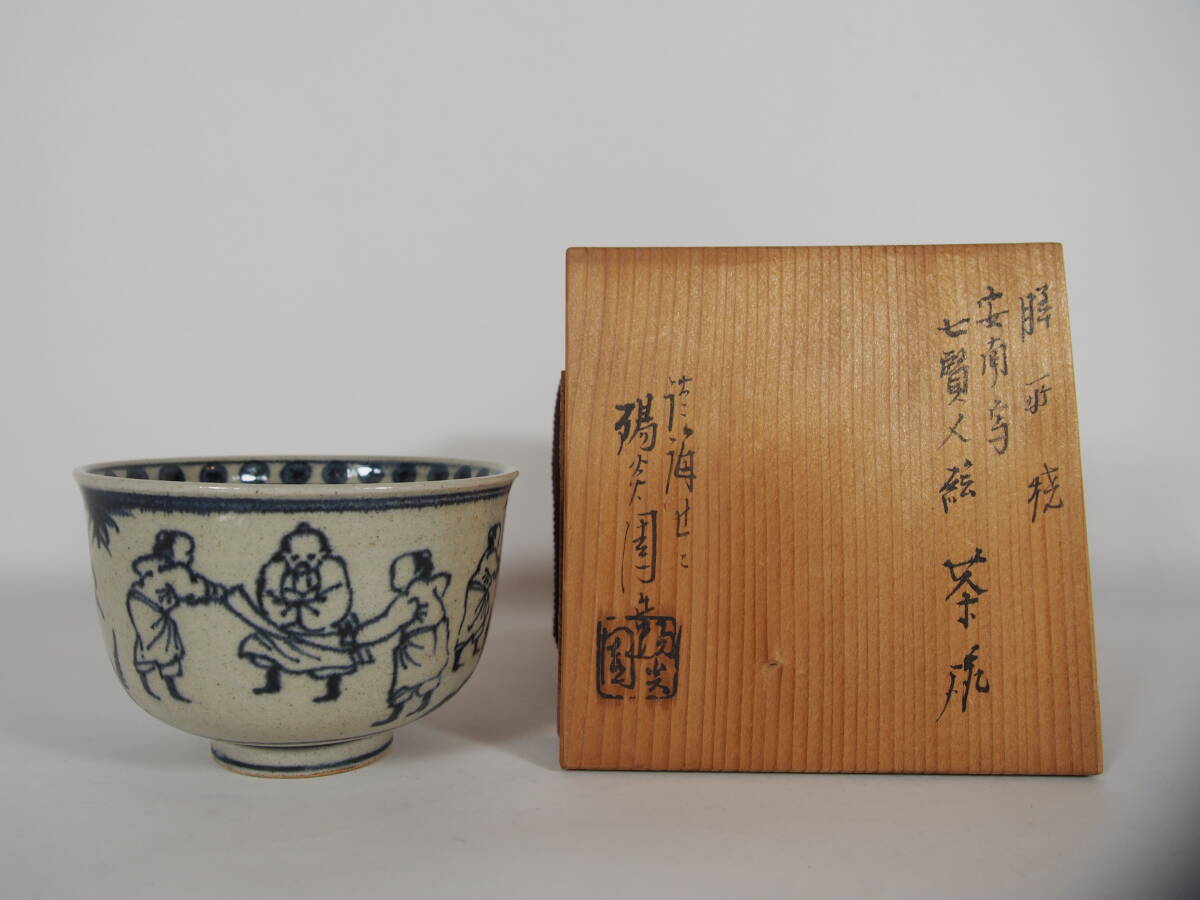 膳所焼
安南写
七賢人絵 茶碗
陽炎園
陽炎園